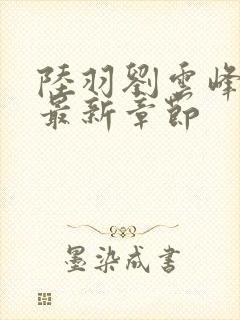 陸羽劉雲峰
最新章節
墨染成書